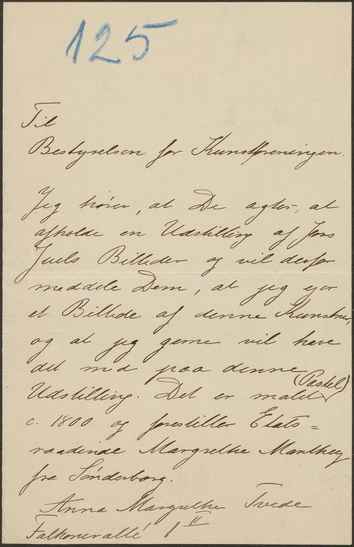 125
Til
Bestyrelsen for Kunstforeningen.
Jeg hører, at De agter, at
afholde en Udstilling af Jens
Juels Billeder og vil derfor
meddele Dem, at jeg ejer
et Billede af denne Kunstner,
og at jeg gerne vil have
det med paa denne
Udstilling. Det er malet (Pastel)
c. 1800 og forestiller Etats=
raadinde Margrethe
fra Sønderborg.
Anna Margrethe Tvede
Falkonerallé 1